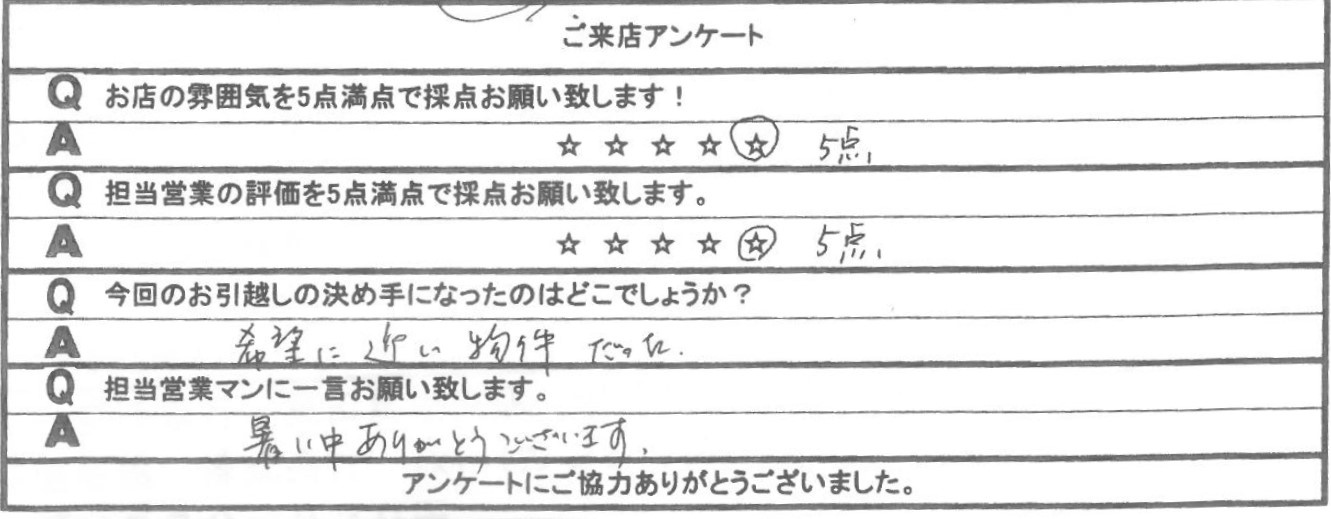 ご来店アンケート
Q お店の雰囲気を5点満点で採点お願い致します！
A ☆ ☆ ☆ ☆ ☆ 5点
Q 担当営業の評価を5点満点で採点お願い致します。
A ☆ ☆ ☆ ☆ ☆ 5点
Q 今回のお引越しの決め手になったのはどこでしょうか？
A 希望に近い物件だった.
Q 担当営業マンに一言お願い致します。
A 暑い中ありがとうございます.
アンケートにご協力ありがとうございました。